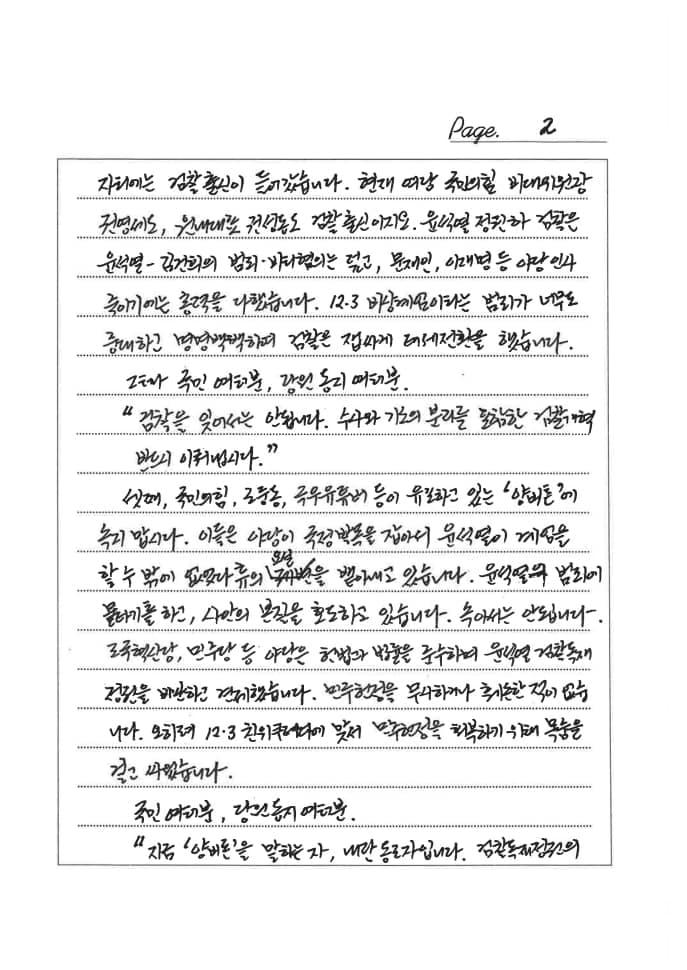 Page. 2
자리에는 검찰 출신이 들어갔습니다. 현재 여당 국민의힐 비대위원장
권영세도, 원내대표 권성동도 검찰 출신이지요. 윤석열 정권하 검찰은
윤석열-김건희의 범죄·비리혐의는 덮고, 문재인, 이재명 등 야당 인사
죽이기에는 총력을 다했습니다. 12.3 비상계엄이라는 범죄가 너무도
중대하고 명명백백하여 검찰은 잽싸게 태세전환을 했습니다.
그러나 국민 여러분, 당원 동지 여러분.
"검찰을 잊어서는 안됩니다. 수사와 기소의 분리를 포함한 검찰개혁
반드시 이뤄냅시다."
셋째, 국민의힘, 조중동, 극우유튜버 등이 유포하고 있는 '양비론'에
속지 맙시다. 이들은 야당이 국정발목을 잡아서 윤석열이 계엄을
할 수 밖에 없었다 류의 요설을 뱉어내고 있습니다. 윤석열의 범죄에
물타기를 하고, 사안의 본질을 호도하고 있습니다. 속아서는 안됩니다.
조국혁신당, 민주당 등 야당은 헌법과 법률을 준수하며 윤석열 검찰독재
정권을 비판하고 견제했습니다. 민주헌정을 무시하거나 훼손한 적이 없습
니다. 오히려 12.3 친위쿠데타에 맞서 민주헌정을 회복하기 위해 목숨을
걸고 싸웠습니다.
국민 여러분, 당원 동지 여러분.
"지금 '양비론'을 말하는 자, 내란 동조자입니다. 검찰독재정권의